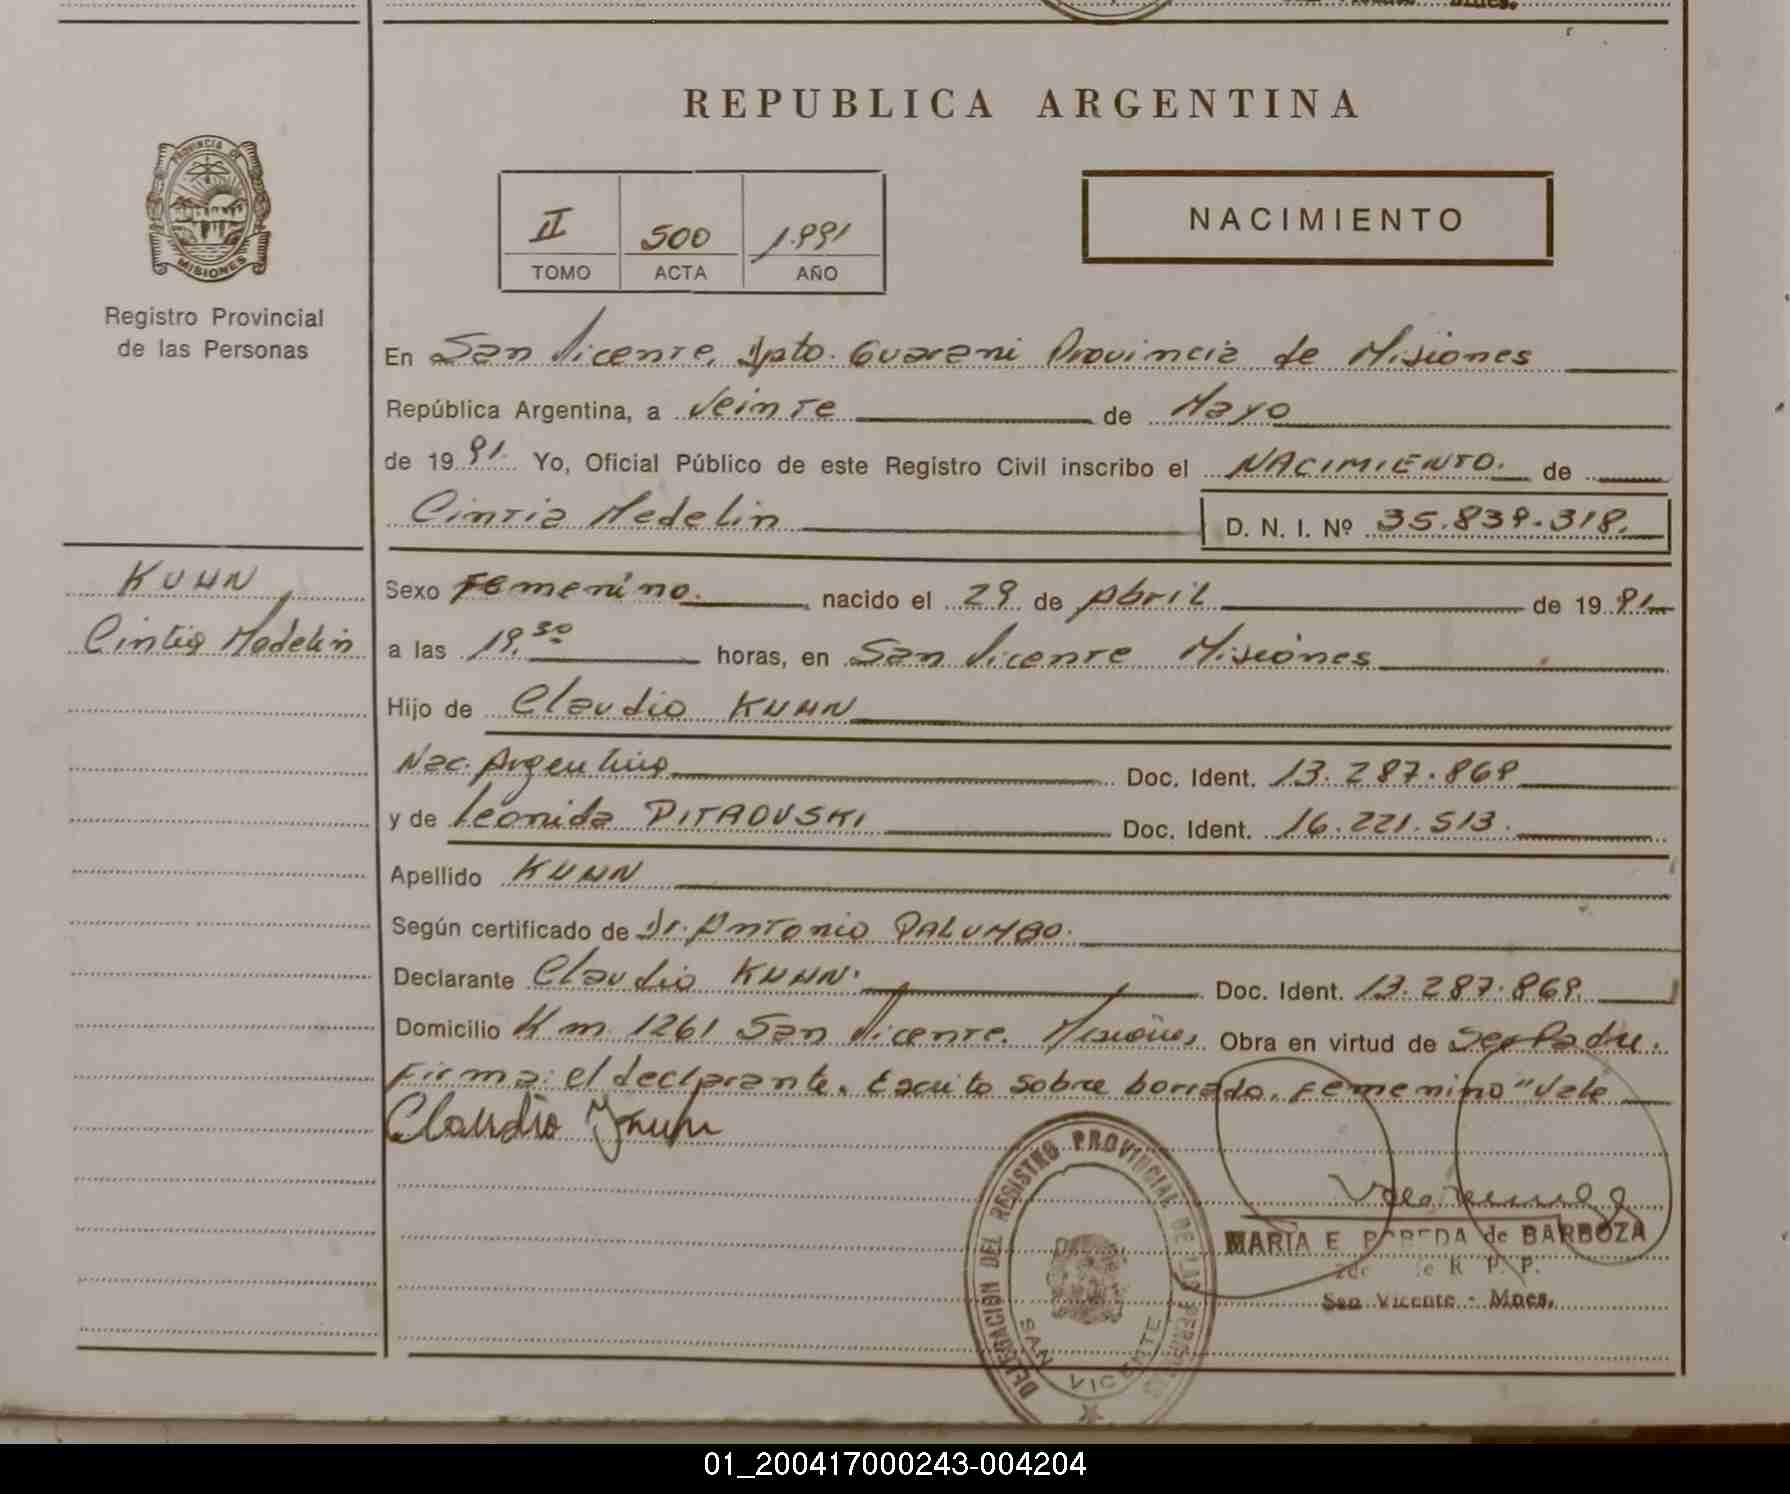 REPUBLICA ARGENTINA
PROVINCIA DE
MISIONES
Registro Provincial
de las Personas
II 500 1.991
TOMO ACTA AÑO
NACIMIENTO
En San Vicente, Dpto. Guarani Provincia de Misiones
República Argentina, a Veinte de Mayo
de 1991. Yo, Oficial Público de este Registro Civil inscribo el NACIMIENTO. de
Cintia Medelin D. N. I. Nº 35.839.318.
KUHN
Cintia Medelin
Sexo Femenino. nacido el 29 de Abril de 1991
a las 19,30 horas, en San Vicente Misiones
Hijo de Claudio KUHN
Nac. Argentino Doc. Ident. 13.287.869
y de Leonida PITROVSKI Doc. Ident. 16.221.513.
Apellido KUHN
Según certificado de Dr. Antonio PALUMBO.
Declarante Claudio KUHN. Doc. Ident. 13.287.869.
Domicilio Km. 1261 San Vicente. Misiones Obra en virtud de Ser Padre.
Firma: el declarante. Escrito sobre borrado. Femenino "Vale
Claudio Kuhn
DELEGACION DEL REGISTRO PROVINCIAL DE LAS PERSONAS
SAN VICENTE
MARIA E. de BARBOZA
R. P. P.
San Vicente - Mnes.
01_200417000243-004204